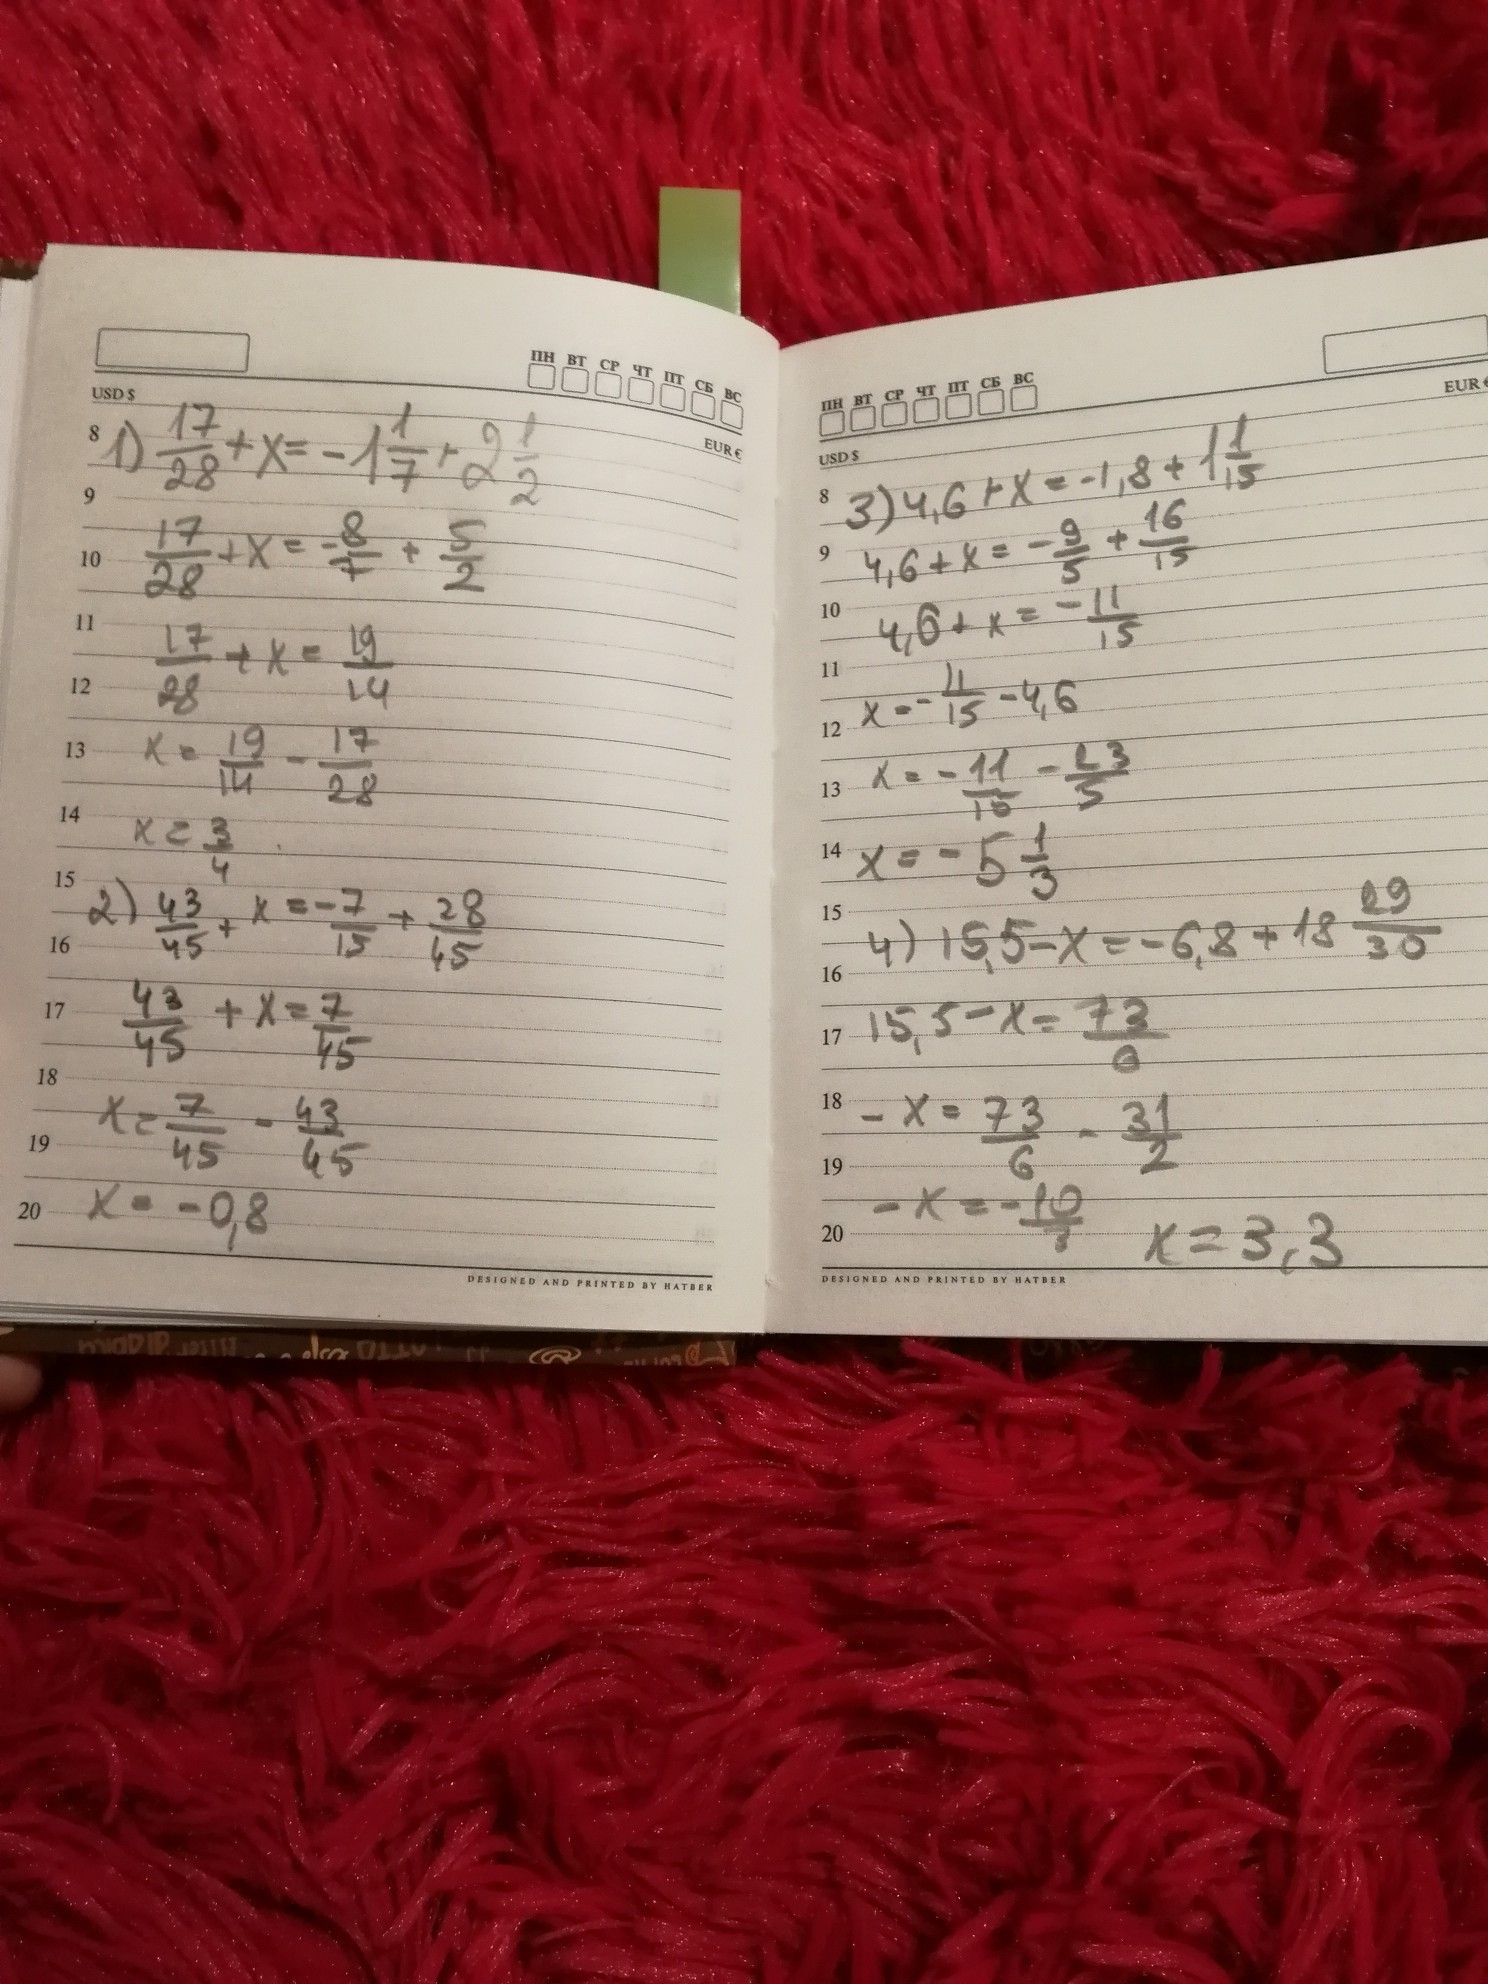 ПН ВТ СР ЧТ ПТ СБ ВС
USD $
EUR €
8 1) 17/28 + x = -1 1/7 + 2 1/2
9
10 17/28 + x = -8/7 + 5/2
11
12 17/28 + x = 19/14
13 x = 19/14 - 17/28
14 x = 3/4
15
16 2) 43/45 + x = -7/15 + 28/45
17 43/45 + x = 7/45
18
19 x = 7/45 - 43/45
20 x = -0,8
DESIGNED AND PRINTED BY HATBER
ПН ВТ СР ЧТ ПТ СБ ВС
USD $
EUR €
8 3) 4,6 + x = -1,8 + 1 1/15
9 4,6 + x = -9/5 + 16/15
10 4,6 + x = -11/15
11
12 x = -11/15 - 4,6
13 x = -11/15 - 23/5
14 x = -5 1/3
15
16 4) 15,5 - x = -6,8 + 18 29/30
17 15,5 - x = 73/6
18 - x = 73/6 - 31/2
19
20 - x = -10/3 x = 3,3
DESIGNED AND PRINTED BY HATBER